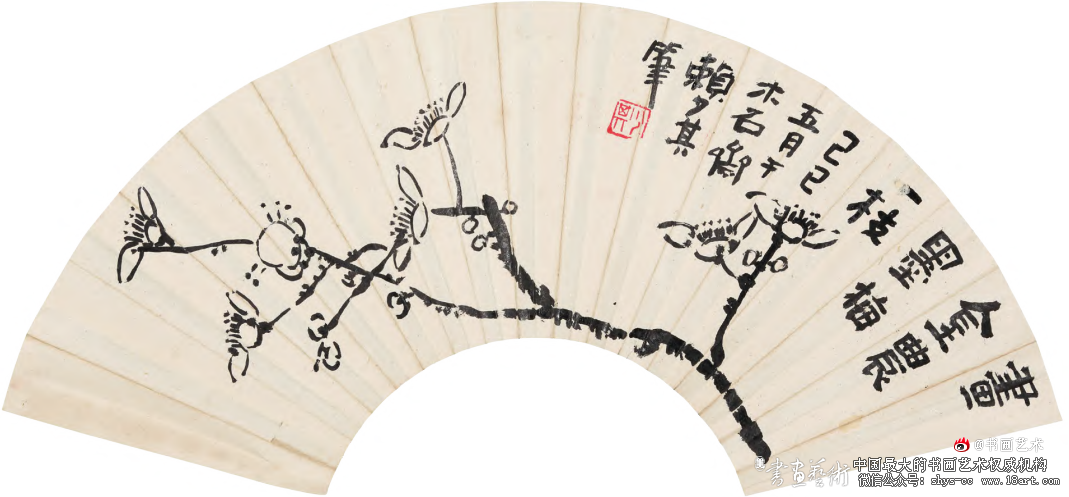 畫
金農
墨梅
一枝
己巳
五月于
木石齋
賴少其
筆
@书画艺术
書畫藝術
中国最大的书画艺术权威机构
微信公众号：shys-cc www.18art.com